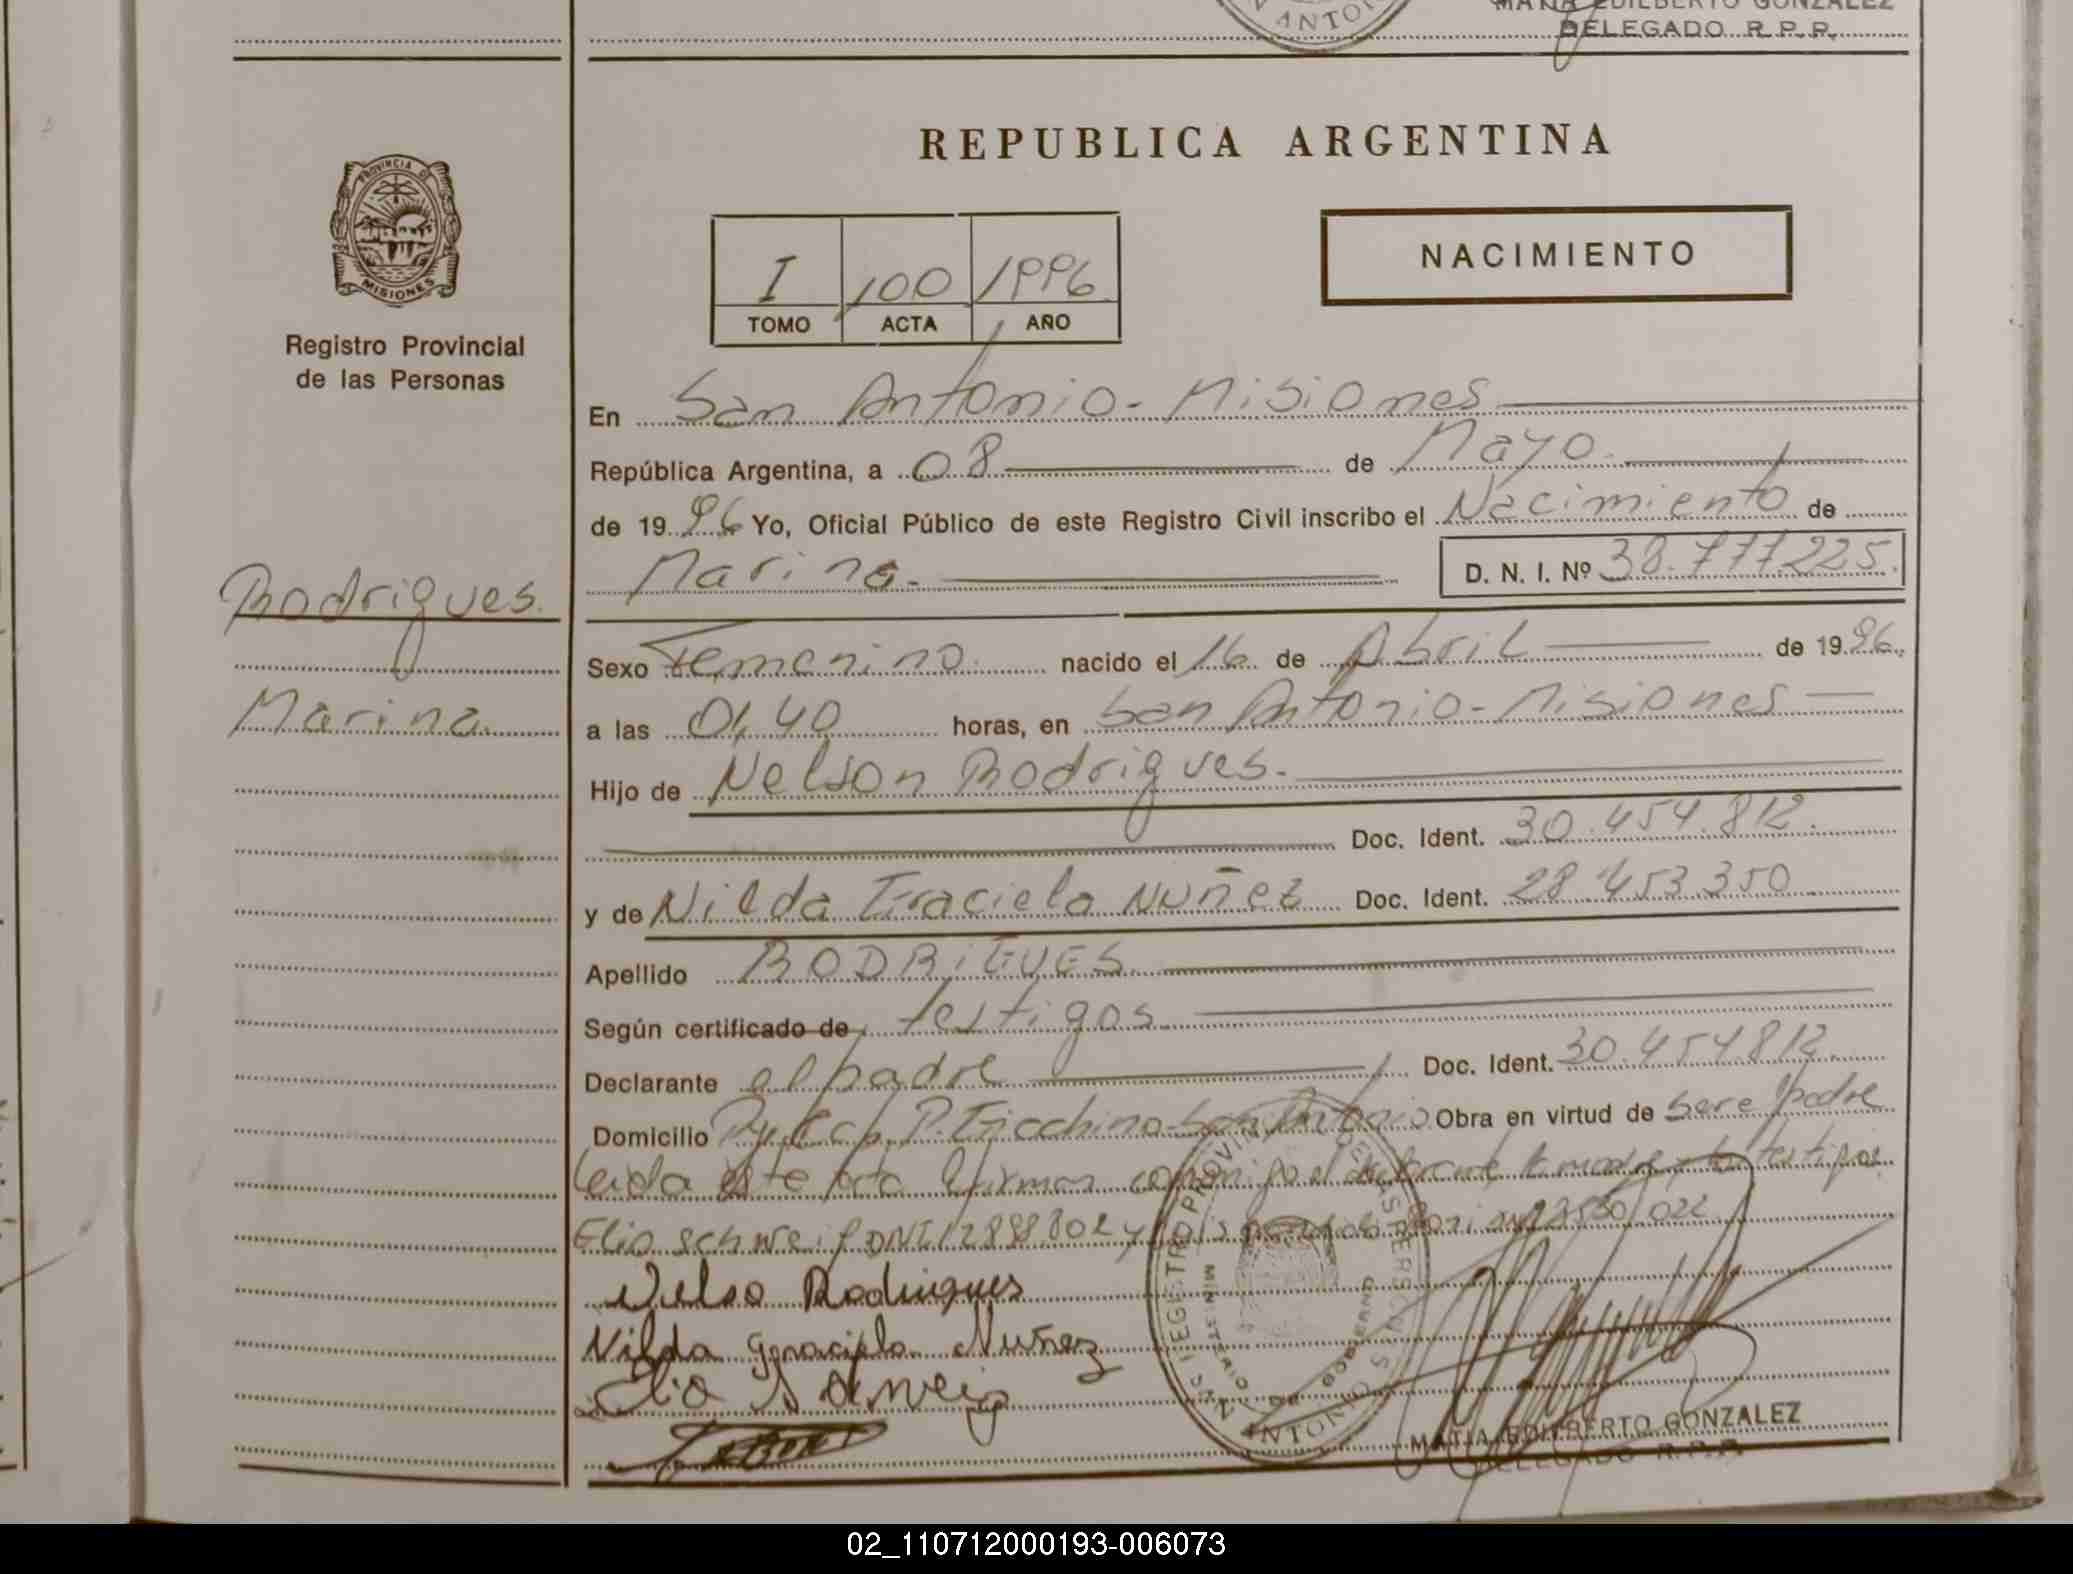 MATIA EDILBERTO GONZALEZ
DELEGADO R.P.R.
REPUBLICA ARGENTINA
PROVINCIA DE MISIONES
Registro Provincial
de las Personas
I 100 1996
TOMO ACTA AÑO
NACIMIENTO
En San Antonio - Misiones
República Argentina, a 08 de Mayo
de 1996 Yo, Oficial Público de este Registro Civil inscribo el Nacimiento de
Marina. D. N. I. Nº 38.777.225.
Rodrigues.
Marina.
Sexo Femenino nacido el 16 de Abril de 1996.
a las 01,40 horas, en San Antonio - Misiones
Hijo de Nelson Rodrigues.
Doc. Ident. 30.454.812.
y de Nilda Graciela Nuñez Doc. Ident. 28.453.350
Apellido RODRIGUES.
Según certificado de testigos
Declarante el padre Doc. Ident. 30.454.812.
Domicilio San Antonio Obra en virtud de ser el padre
Leida este acta firman conmigo el declarante la madre y los testigos
Elio schweif DNI 12898802 y
Nelso Rodrigues
Nilda Graciela Nuñez
Elio
MATIA EDILBERTO GONZALEZ
DELEGADO R.P.R.
02_110712000193-006073